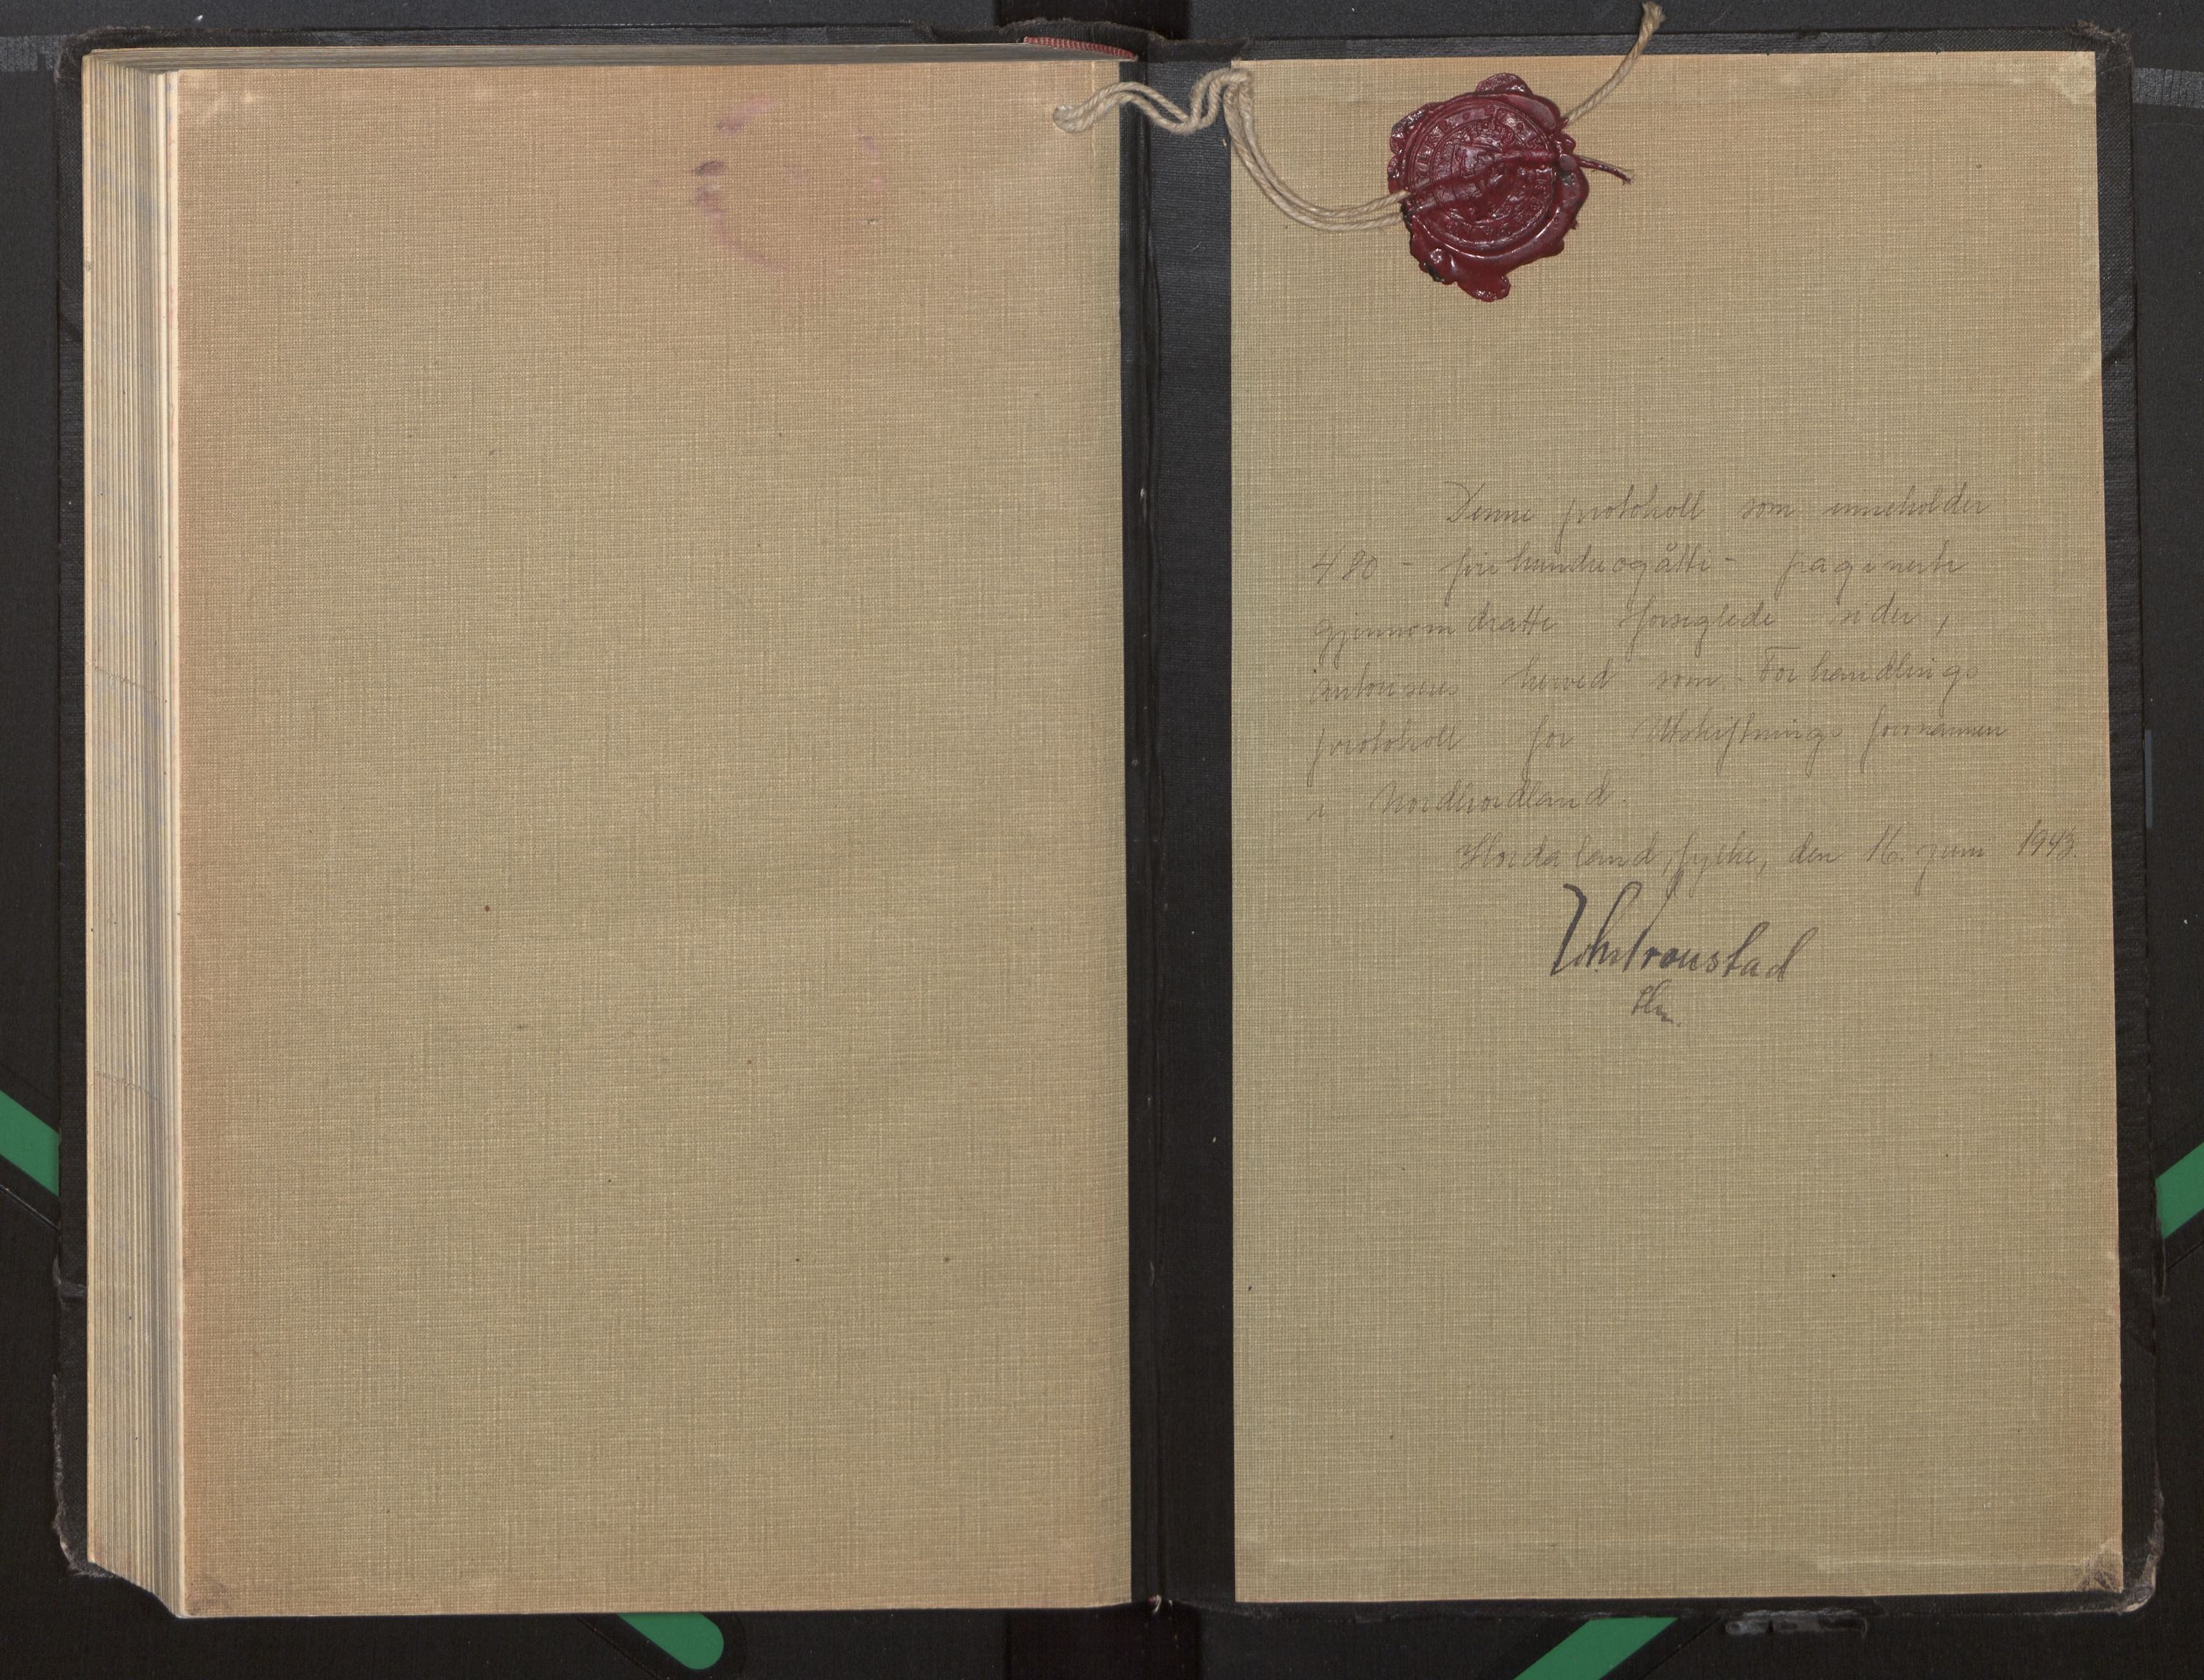 Denne protokoll som inneholder
480 - firehundreogåtti - paginerte
gjennomdratte forseglede sider,
autoriseres herved som Forhandlings
protokoll for Utskiftningsformannen
i Nordhordland.
Hordaland fylke, den 16. juni 1943.